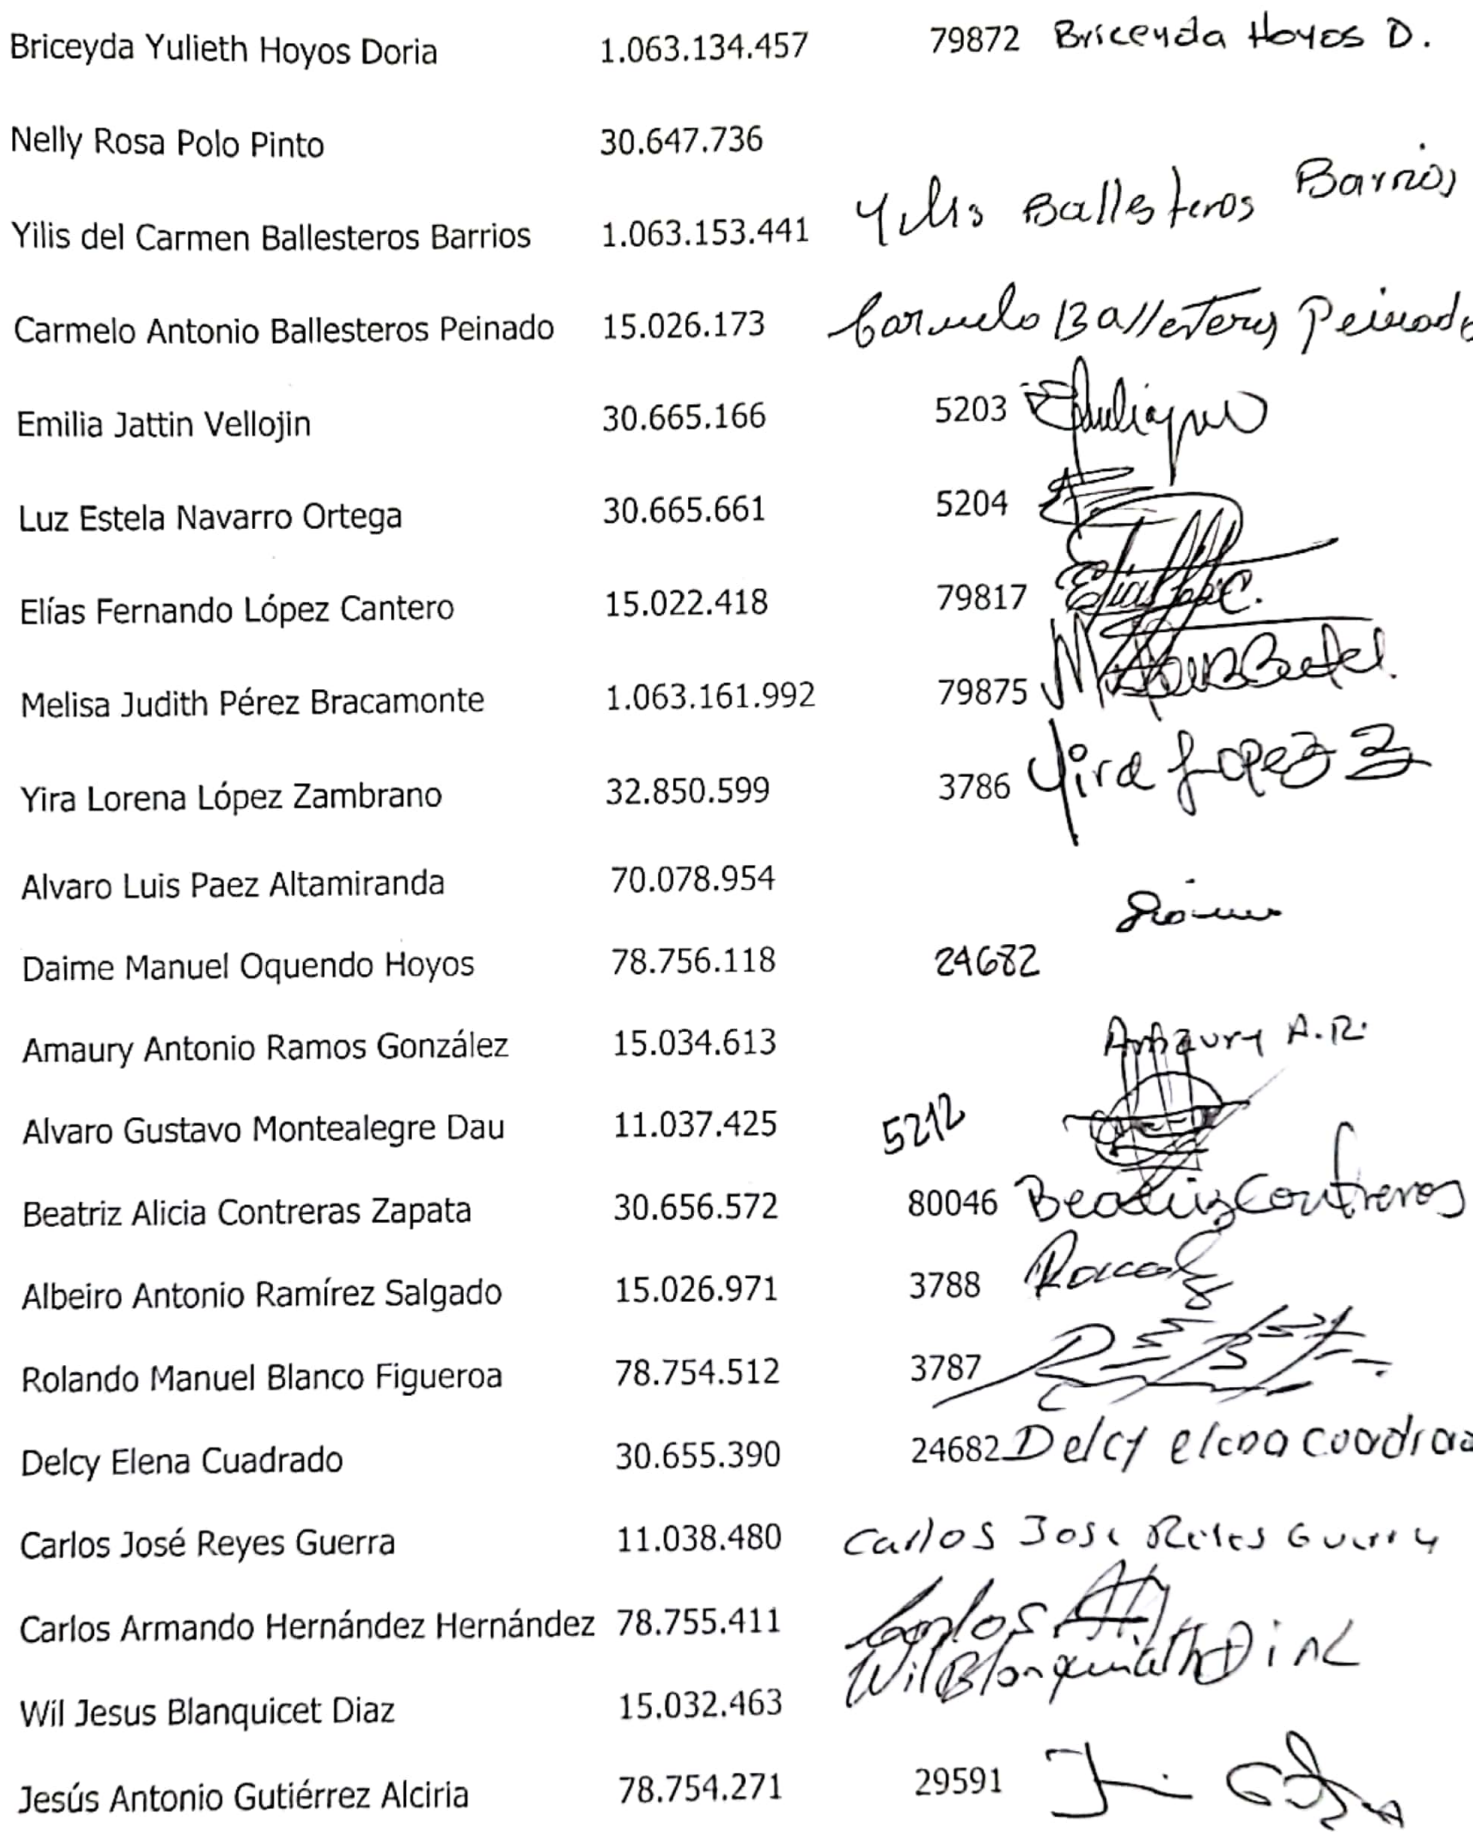 Briceyda Yulieth Hoyos Doria 1.063.134.457 79872 Briceyda Hoyos D.
Nelly Rosa Polo Pinto 30.647.736
Yilis del Carmen Ballesteros Barrios 1.063.153.441 Yilis Ballesteros Barrios
Carmelo Antonio Ballesteros Peinado 15.026.173 Carmelo Ballesteros Peinado
Emilia Jattin Vellojin 30.665.166 5203
Luz Estela Navarro Ortega 30.665.661 5204
Elías Fernando López Cantero 15.022.418 79817
Melisa Judith Pérez Bracamonte 1.063.161.992 79875
Yira Lorena López Zambrano 32.850.599 3786 Yira Lopez Z
Alvaro Luis Paez Altamiranda 70.078.954
Daime Manuel Oquendo Hoyos 78.756.118 24682
Amaury Antonio Ramos González 15.034.613 Amaury A.R.
Alvaro Gustavo Montealegre Dau 11.037.425 5212
Beatriz Alicia Contreras Zapata 30.656.572 80046 Beatriz Contreras
Albeiro Antonio Ramírez Salgado 15.026.971 3788
Rolando Manuel Blanco Figueroa 78.754.512 3787
Delcy Elena Cuadrado 30.655.390 24682 Delcy elena
Carlos José Reyes Guerra 11.038.480 Carlos Jose Reies Guerra
Carlos Armando Hernández Hernández 78.755.411 Carlos
Wil Jesus Blanquicet Diaz 15.032.463 Wil Blanquicet
Jesús Antonio Gutiérrez Alciria 78.754.271 29591